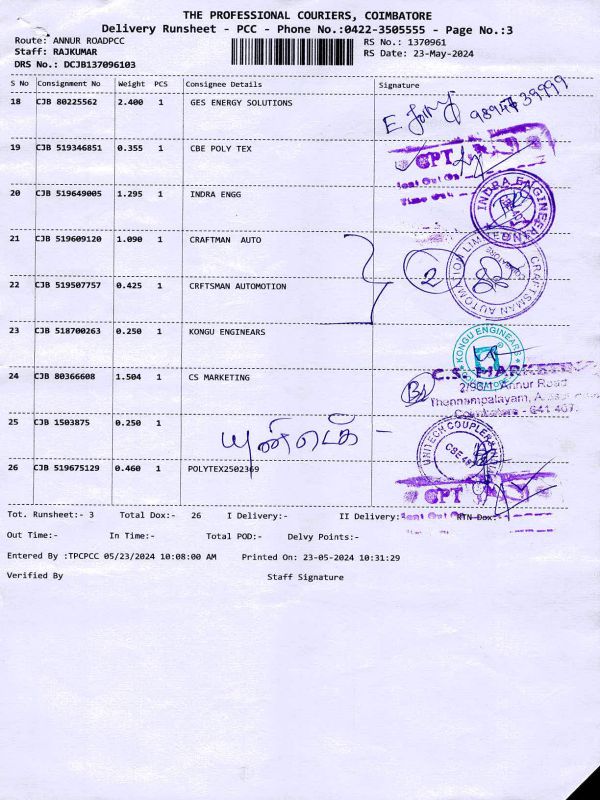 THE PROFESSIONAL COURIERS, COIMBATORE
Delivery Runsheet - PCC - Phone No.:0422-3505555 - Page No.:3
Route: ANNUR ROADPCC RS No.: 1370961
Staff: RAJKUMAR RS Date: 23-May-2024
DRS No.: DCJB137096103
S No Consignment No Weight PCS Consignee Details Signature
18 CJB 80225562 2.400 1 GES ENERGY SOLUTIONS
19 CJB 519346851 0.355 1 CBE POLY TEX
CPT
20 CJB 519649005 1.295 1 INDRA ENGG
INDRA ENGINEERING
21 CJB 519609120 1.090 1 CRAFTMAN AUTO
2
CRAFTSMAN AUTOMATION LIMITED
22 CJB 519507757 0.425 1 CRFTSMAN AUTOMOTION
23 CJB 518700263 0.250 1 KONGU ENGINEARS
KONGU ENGINEARS
24 CJB 80366608 1.504 1 CS MARKETING
Annur Road
Thennampalayam,
Coimbatore - 641 407.
25 CJB 1503875 0.250 1
யுனிடெக் -
UNITECH COUPLER
26 CJB 519675129 0.460 1 POLYTEX2502369
CPT
Tot. Runsheet:- 3 Total Dox:- 26 I Delivery:- II Delivery:- RTN Dox:-
Out Time:- In Time:- Total POD:- Delvy Points:-
Entered By :TPCPCC 05/23/2024 10:08:00 AM Printed On: 23-05-2024 10:31:29
Verified By Staff Signature